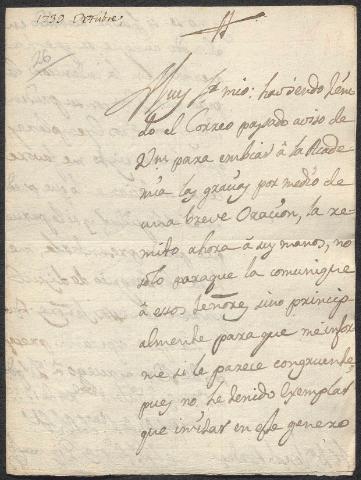 1739 Octubre.
26
Muy Sr. mio: haviendo teni
do el Correo pasado aviso de
Vm. para embiar à la Acade
mia las gracias por medio de
una breve Oracion, la re
mito ahora à sus manos, no
solo para que la comunique
à essos señores, sino princip
almente para que me infor
me si le parece congruente,
pues no he tenido exemplar
que imitar en este genero